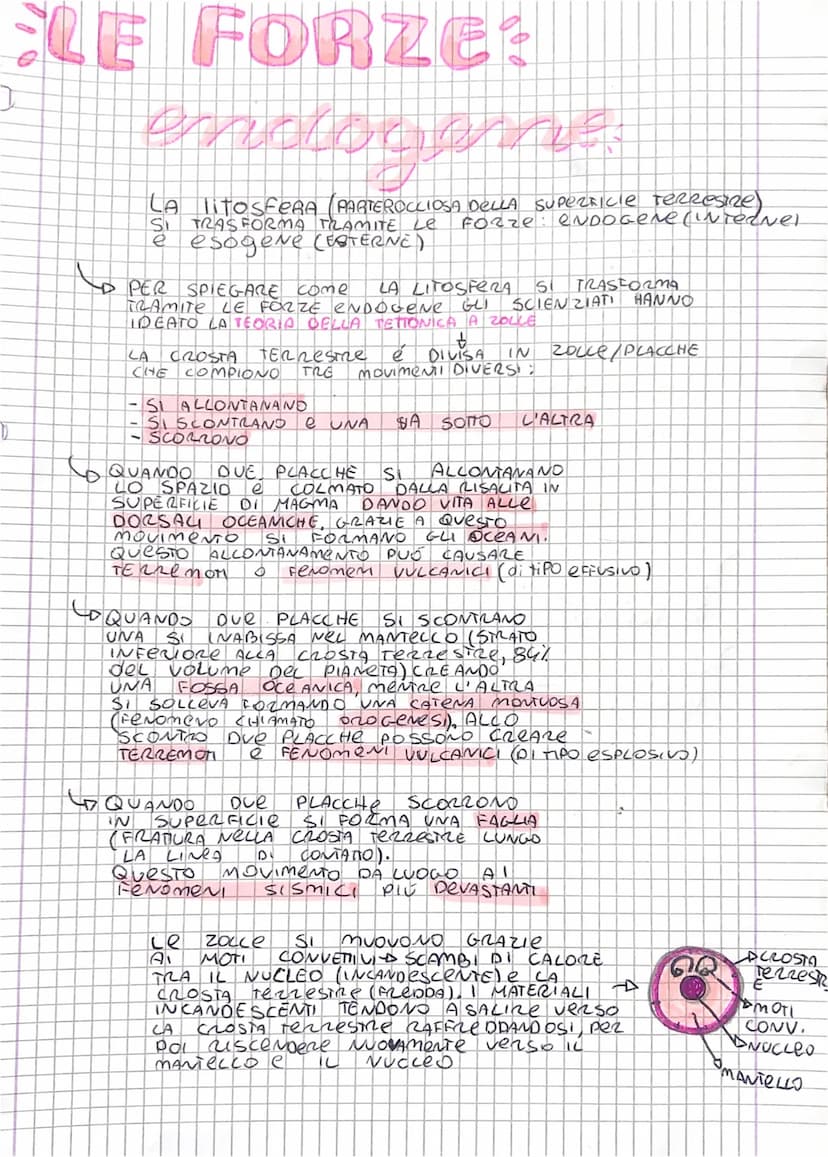 LE FORZE
endogene:
LA litosfera (PARTE ROCCIOSA DELLA SUPERFICIE TERRESTRE)
SI TRASFORMA TRAMITE LE FORZE: ENDOGENE (INTERNE)
E ESOGENE (ESTERNE)
PER SPIEGARE COME LA LITOSFERA SI TRASFORMA
TRAMITE LE FORZE ENDOGENE GLI SCIENZIATI HANNO
IDEATO LA TEORIA DELLA TETTONICA A ZOLLE
LA CROSTA TERRESTRE é DIVISA IN ZOLLE/PLACCHE
CHE COMPIONO TRE MOVIMENTI DIVERSI:
- SI ALLONTANANO
- SI SCONTRANO E UNA VA SOTTO L'ALTRA
- SCORRONO
QUANDO DUE PLACCHE SI ALLONTANANO
LO SPAZIO é COLMATO DALLA RISALITA IN
SUPERFICIE DI MAGMA DANDO VITA ALLE
DORSALI OCEANICHE. GRAZIE A QUESTO
MOVIMENTO SI FORMANO GLI OCEANI.
QUESTO ALLONTANAMENTO PUÓ CAUSARE
TERREMOTI O FENOMENI VULCANICI (di TIPO EFFUSIVO)
QUANDO DUE PLACCHE SI SCONTRANO
UNA SI INABISSA NEL MANTELLO (STRATO
INFERIORE ALLA CROSTA TERRESTRE, 84%
DEL VOLUME DEL PIANETA) CREANDO
UNA FOSSA OCEANICA, MENTRE L'ALTRA
SI SOLLEVA FORMANDO UNA CATENA MONTUOSA
(FENOMENO CHIAMATO OROGENESI). ALLO
SCONTRO DUE PLACCHE POSSONO CREARE
TERREMOTI E FENOMENI VULCANICI (DI TIPO ESPLOSIVO)
QUANDO DUE PLACCHE SCORRONO
IN SUPERFICIE SI FORMA UNA FAGLIA
(FRATTURA NELLA CROSTA TERRESTRE LUNGO
LA LINEA DI CONTATTO).
QUESTO MOVIMENTO DA LUOGO AI
FENOMENI SISMICI PIÚ DEVASTANTI
LE ZOLLE SI MUOVONO GRAZIE
AI MOTI CONVETTIVI → SCAMBI DI CALORE
TRA IL NUCLEO (INCANDESCENTE) E LA
CROSTA TERRESTRE (FREDDA). I MATERIALI
INCANDESCENTI TENDONO A SALIRE VERSO
LA CROSTA TERRESTRE RAFFREDDANDOSI, PER
POI RISCENDERE NUOVAMENTE VERSO IL
MANTELLO E IL NUCLEO
CROSTA
TERRESTR
E
MOTI
CONV.
NUCLEO
MANTELLO